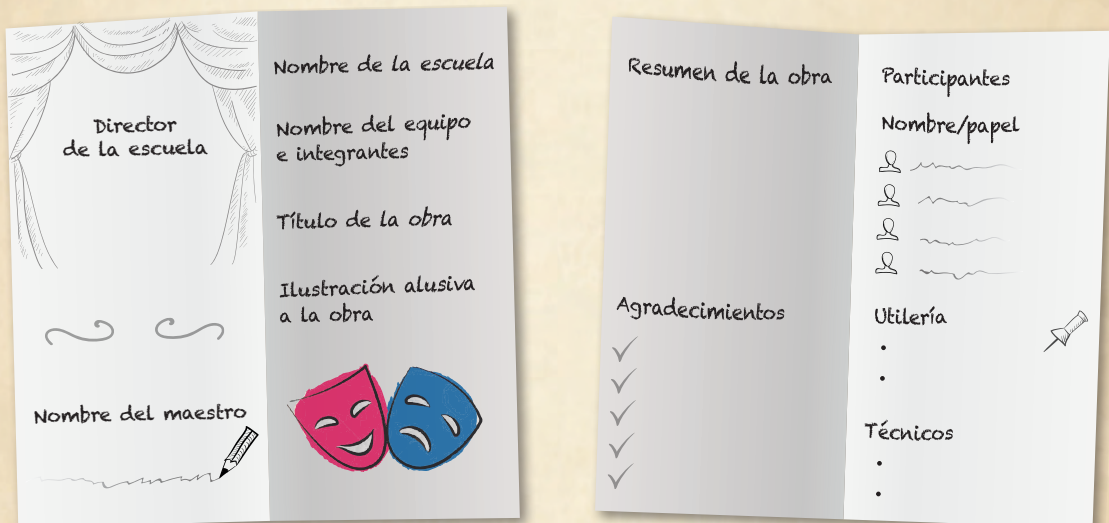 Director
de la escuela
Nombre del maestro
Nombre de la escuela
Nombre del equipo
e integrantes
Título de la obra
Ilustración alusiva
a la obra
Resumen de la obra
Agradecimientos
Participantes
Nombre/papel
Utilería
Técnicos